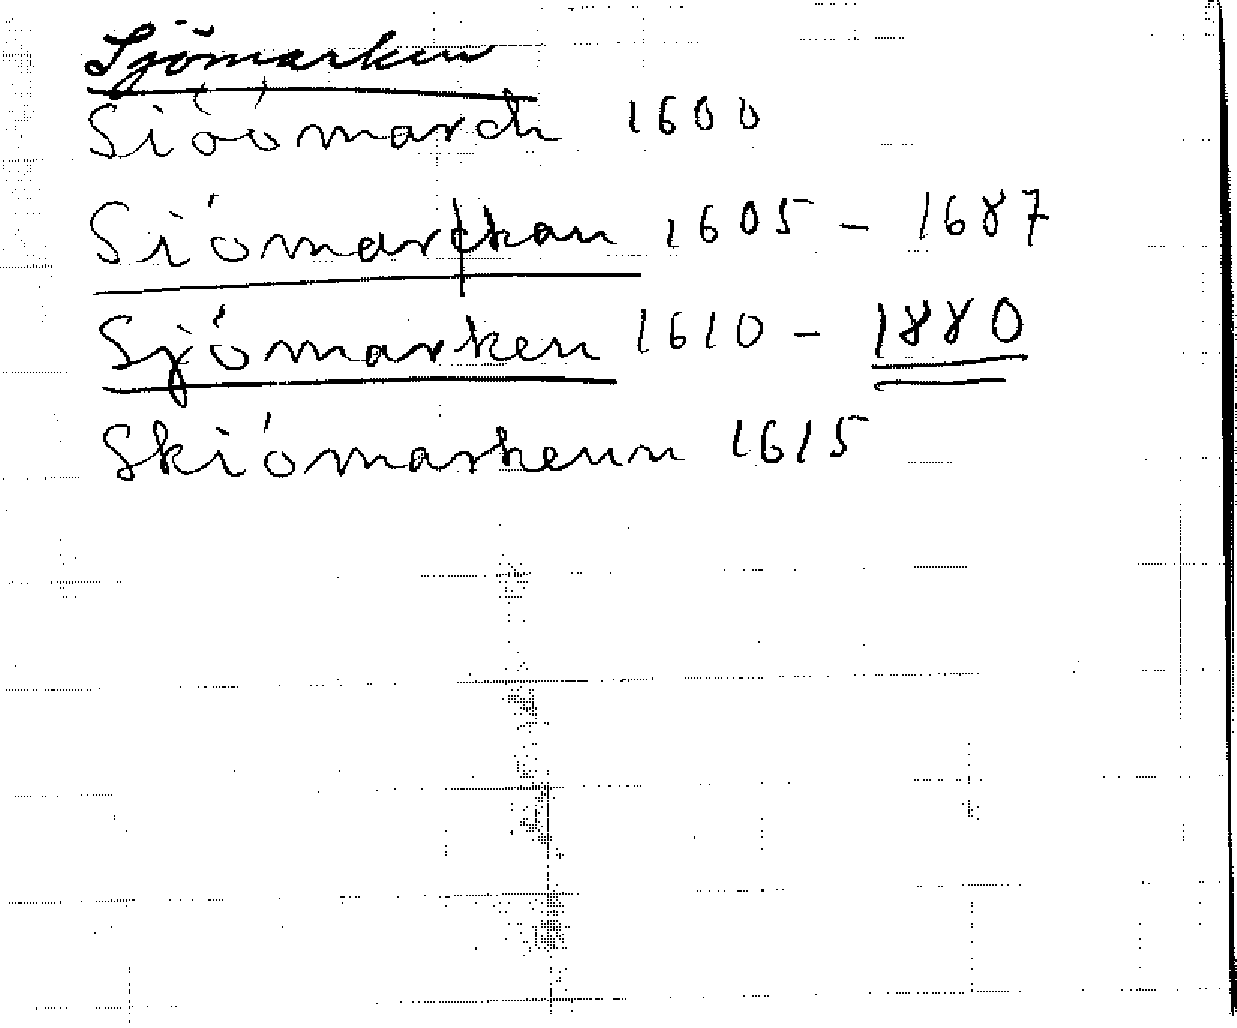 Sjömarken
Sióómarch 1600
Siómarckan 1605 – 1687
Sjómarken 1610 – 1880
Skiómarkenn 1615